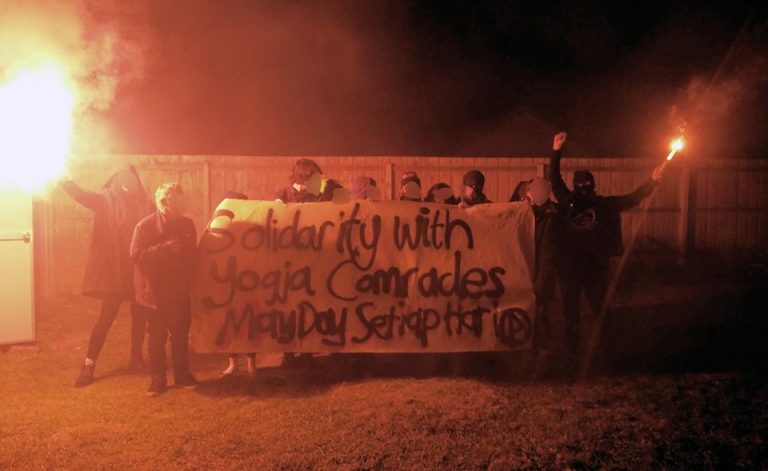 Solidarity with
Yogja Comrades
May Day Setiap Hari Ⓐ